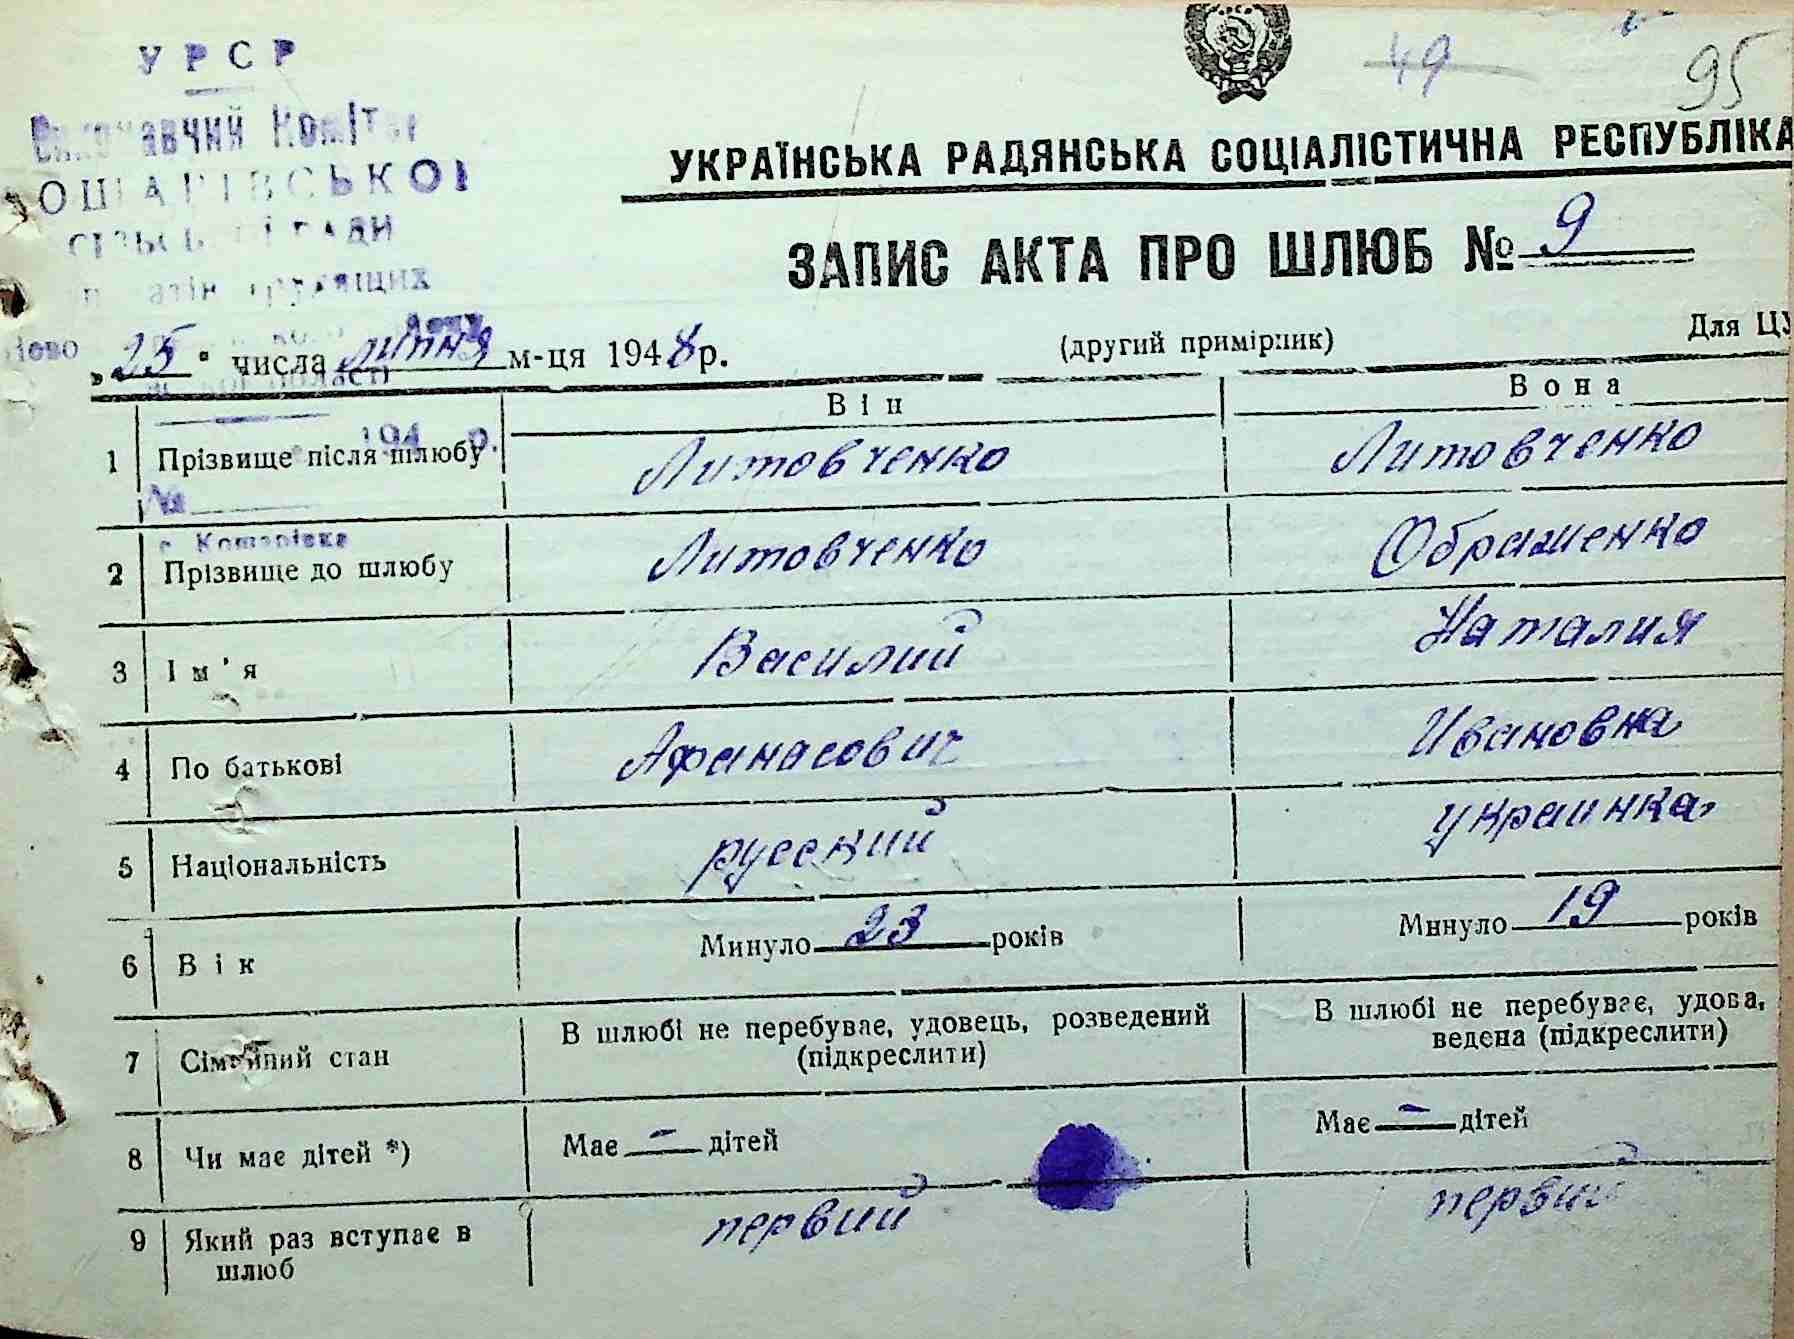 УРСР
Виконавчий Комітет
КОШАРІВСЬКОЇ
сільської Ради
49
95
УКРАЇНСЬКА РАДЯНСЬКА СОЦІАЛІСТИЧНА РЕСПУБЛІКА
ЗАПИС АКТА ПРО ШЛЮБ № 9
„25“ числа липня м-ця 1948 р. (другий примірник) Для ЦУ
Він Вона
194 р.
1 Прізвище після шлюбу Литовченко Литовченко
№
с. Кошарівка
2 Прізвище до шлюбу Литовченко Обраменко
3 Ім'я Василий Наталия
4 По батькові Афанасович Ивановна
5 Національність русский украинка
6 Вік Минуло 23 років Минуло 19 років
7 Сімейний стан В шлюбі не перебуває, удовець, розведений (підкреслити) В шлюбі не перебуває, удова, ведена (підкреслити)
8 Чи має дітей *) Має – дітей Має – дітей
9 Який раз вступає в шлюб первий первий